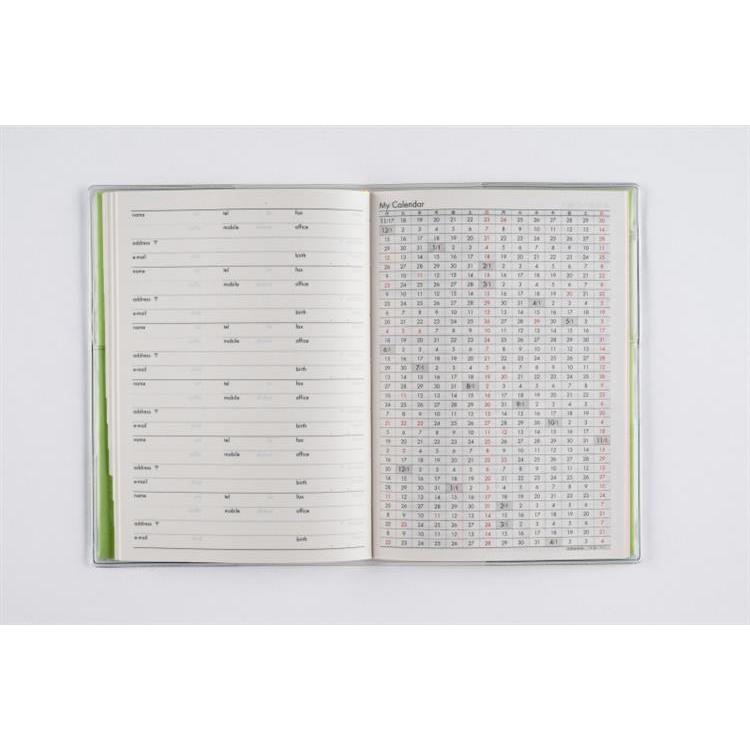 name tel fax
mobile office
address 〒
e-mail birth
name tel fax
mobile office
address 〒
e-mail birth
name tel fax
mobile office
address 〒
e-mail birth
name tel fax
mobile office
address 〒
e-mail birth
name tel fax
mobile office
address 〒
e-mail birth
name tel fax
mobile office
address 〒
e-mail birth
My Calendar
月 火 水 木 金 土 日 月 火 水 木 金 土 日
11/17 18 19 20 21 22 23 24 25 26 27 28 29 30
12/1 2 3 4 5 6 7 8 9 10 11 12 13 14
15 16 17 18 19 20 21 22 23 24 25 26 27 28
29 30 31 1/1 2 3 4 5 6 7 8 9 10 11
12 13 14 15 16 17 18 19 20 21 22 23 24 25
26 27 28 29 30 31 2/1 2 3 4 5 6 7 8
9 10 11 12 13 14 15 16 17 18 19 20 21 22
23 24 25 26 27 28 3/1 2 3 4 5 6 7 8
9 10 11 12 13 14 15 16 17 18 19 20 21 22
23 24 25 26 27 28 29 30 31 4/1 2 3 4 5
6 7 8 9 10 11 12 13 14 15 16 17 18 19
20 21 22 23 24 25 26 27 28 29 30 5/1 2 3
4 5 6 7 8 9 10 11 12 13 14 15 16 17
18 19 20 21 22 23 24 25 26 27 28 29 30 31
6/1 2 3 4 5 6 7 8 9 10 11 12 13 14
15 16 17 18 19 20 21 22 23 24 25 26 27 28
29 30 7/1 2 3 4 5 6 7 8 9 10 11 12
13 14 15 16 17 18 19 20 21 22 23 24 25 26
27 28 29 30 31 8/1 2 3 4 5 6 7 8 9
10 11 12 13 14 15 16 17 18 19 20 21 22 23
24 25 26 27 28 29 30 31 9/1 2 3 4 5 6
7 8 9 10 11 12 13 14 15 16 17 18 19 20
21 22 23 24 25 26 27 28 29 30 10/1 2 3 4
5 6 7 8 9 10 11 12 13 14 15 16 17 18
19 20 21 22 23 24 25 26 27 28 29 30 31 11/1
2 3 4 5 6 7 8 9 10 11 12 13 14 15
16 17 18 19 20 21 22 23 24 25 26 27 28 29
30 12/1 2 3 4 5 6 7 8 9 10 11 12 13
14 15 16 17 18 19 20 21 22 23 24 25 26 27
28 29 30 31 1/1 2 3 4 5 6 7 8 9 10
11 12 13 14 15 16 17 18 19 20 21 22 23 24
25 26 27 28 29 30 31 2/1 2 3 4 5 6 7
8 9 10 11 12 13 14 15 16 17 18 19 20 21
22 23 24 25 26 27 28 29 3/1 2 3 4 5 6
7 8 9 10 11 12 13 14 15 16 17 18 19 20
21 22 23 24 25 26 27 28 29 30 31 4/1 2 3